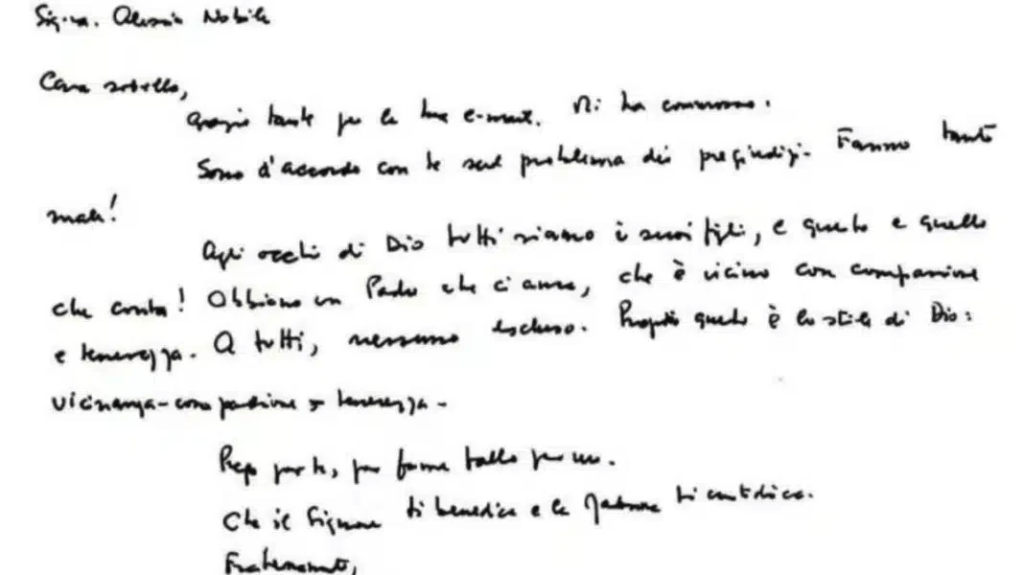 Sig.ra. Alessia Nobile
Cara sorella,
grazie tante per la tua e-mail. Mi ha commosso.
Sono d'accordo con te sul problema dei pregiudizi. Fanno tanto
male!
Agli occhi di Dio tutti siamo i suoi figli, e questo è quello
che conta! Abbiamo un Padre che ci ama, che è vicino con compassione
e tenerezza. A tutti, nessuno escluso. Proprio questo è lo stile di Dio:
vicinanza-compassione e tenerezza-
Prego per te, per favore fallo per me.
Che il Signore ti benedica e la Madonna ti custodisca.
Fraternamente,